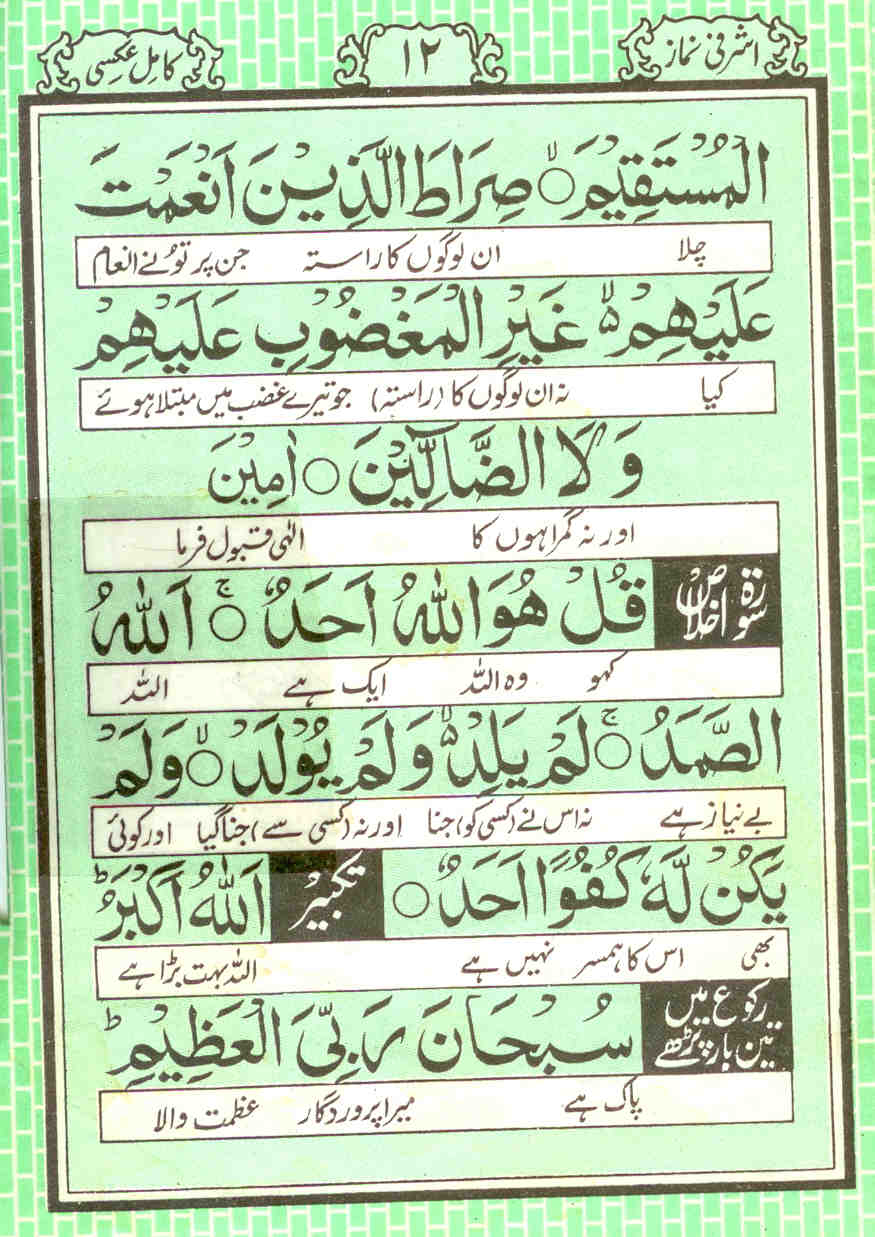 اشرفی نماز ۱۲ کامل عکسی
الْمُسْتَقِيْمَ ۙ صِرَاطَ الَّذِيْنَ اَنْعَمْتَ
چلا ان لوگوں کا راستہ جن پر تونے انعام
عَلَيْهِمْ ۙ۬ غَيْرِ الْمَغْضُوْبِ عَلَيْهِمْ
کیا نہ ان لوگوں کا (راستہ) جو تیرے غضب میں مبتلا ہوئے
وَ لَا الضَّآلِّيْنَ ○ اٰمِيْنَ
اور نہ گمراہوں کا الٰہی قبول فرما
سورۃ اخلاص قُلْ هُوَ اللّٰهُ اَحَدٌ ۚ○ اَللّٰهُ
کہو وہ اللہ ایک ہے اللہ
الصَّمَدُ ۚ○ لَمْ يَلِدْ ۙ۬ وَلَمْ يُوْلَدْ ۙ○ وَلَمْ
بے نیاز ہے نہ اس نے (کسی کو) جنا اور نہ (کسی سے) جنا گیا اور کوئی
يَكُنْ لَّهٗ كُفُوًا اَحَدٌ ○ تکبیر اَللّٰهُ اَكْبَرُ ؕ
بھی اس کا ہمسر نہیں ہے اللہ بہت بڑا ہے
رکوع میں تین بار پڑھے سُبْحَانَ رَبِّيَ الْعَظِيْمِ ؕ
پاک ہے میرا پروردگار عظمت والا